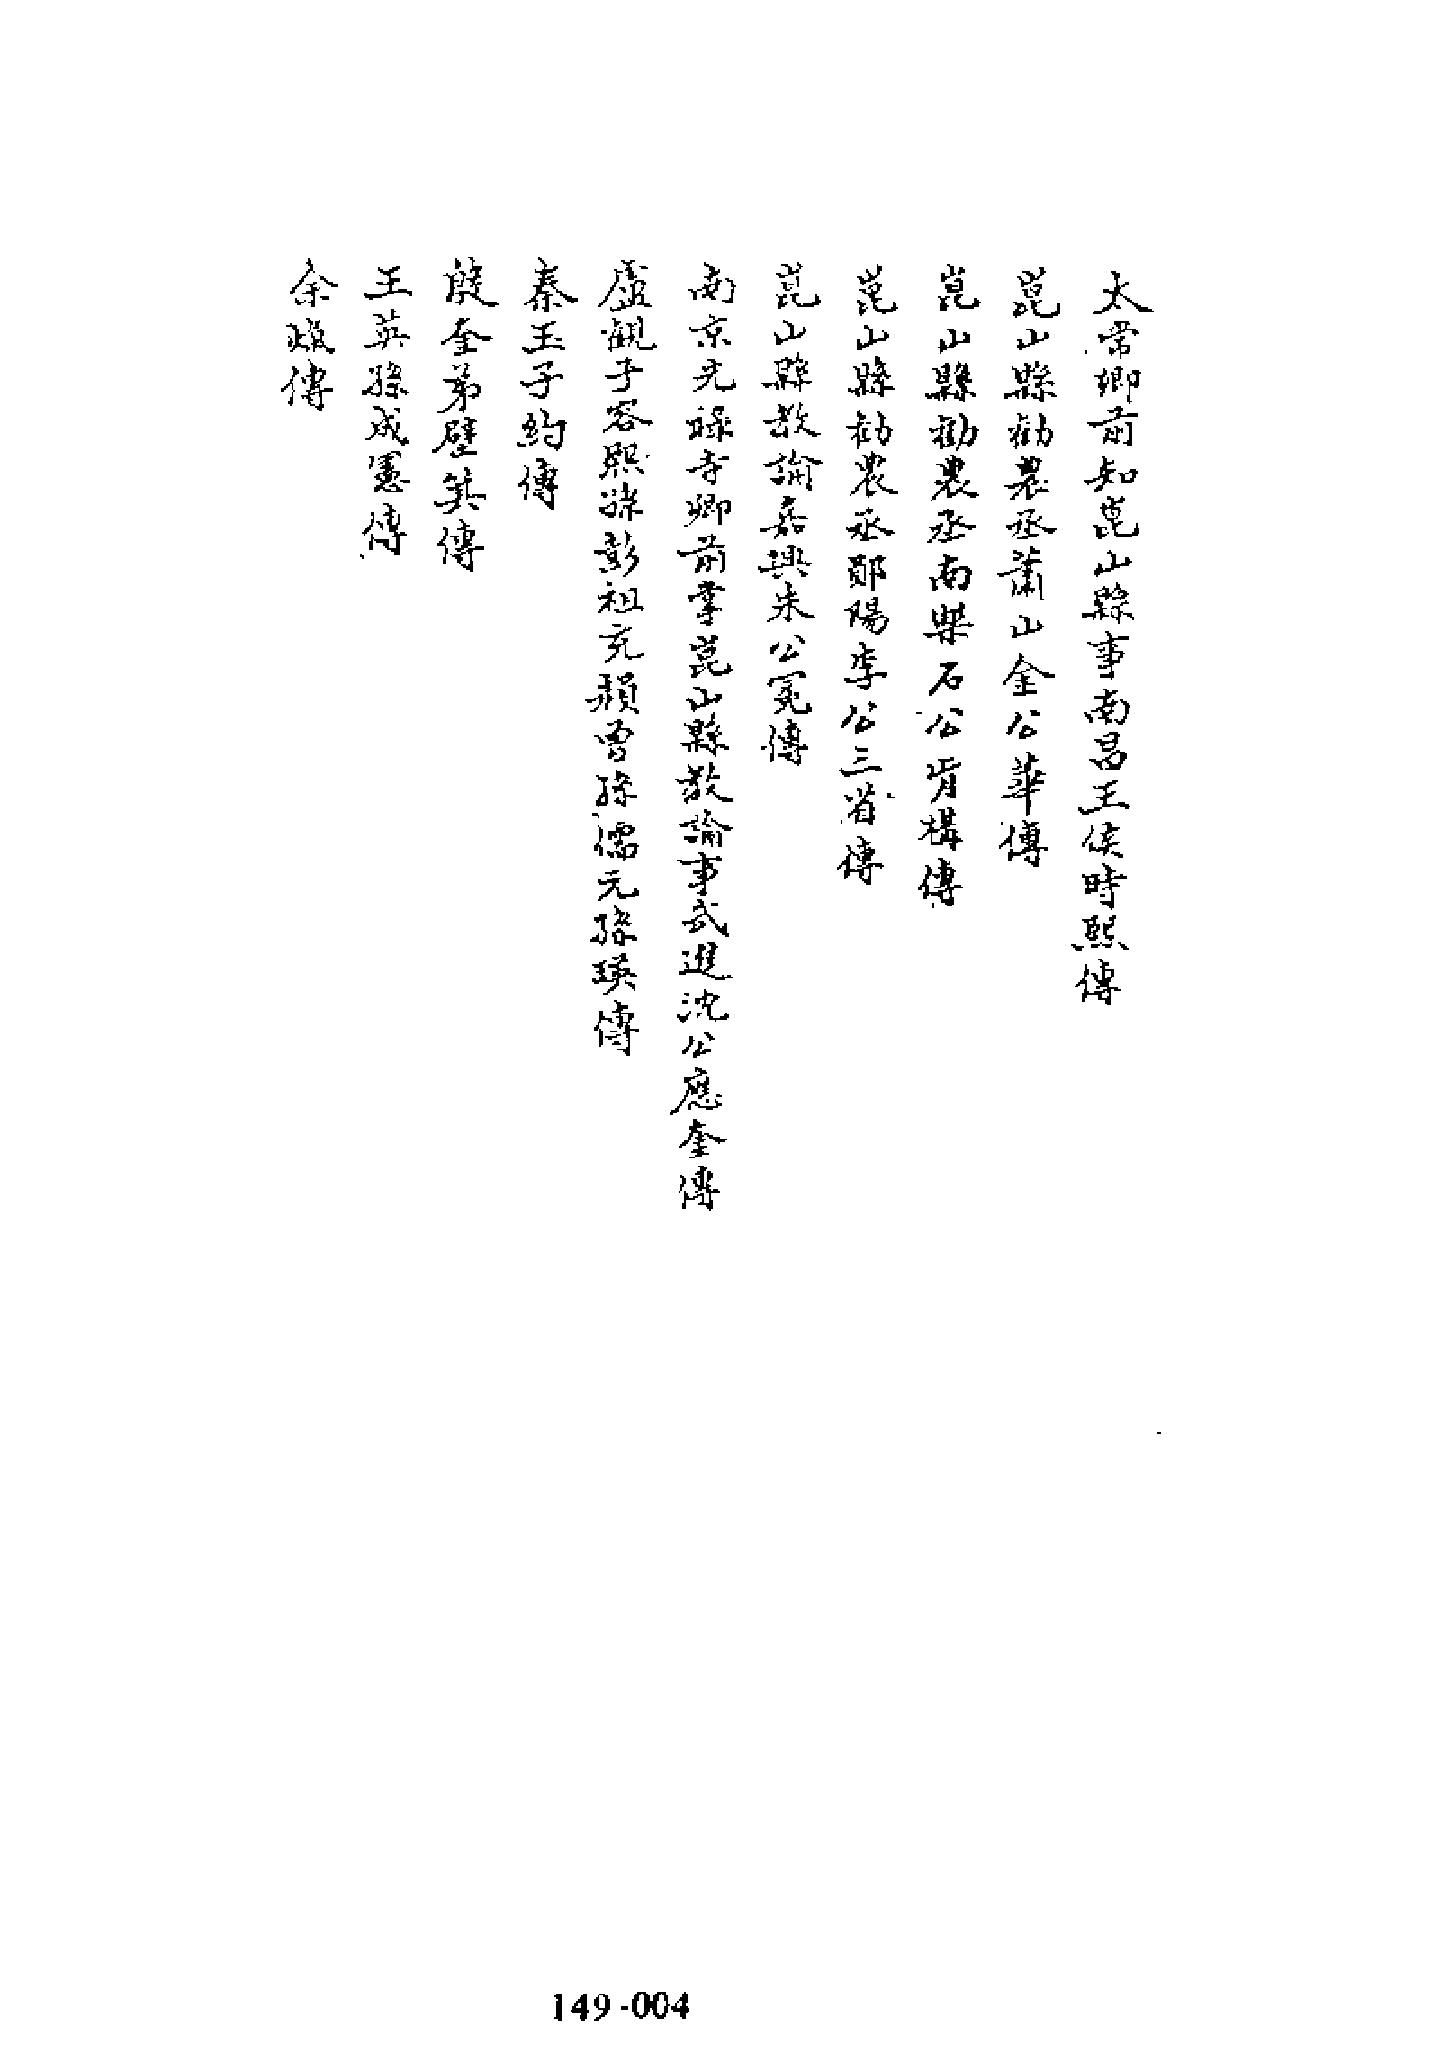 太常卿前知崑山縣事南昌王侯時熙傳
崑山縣勸農丞蕭山金公華傳
崑山縣勸農丞南樂石公肯構傳
崑山縣勸農丞鄖陽李公三省傳
崑山縣教諭嘉興朱公冕傳
南京光祿寺卿前掌崑山縣教諭事武進沈公應奎傳
盧觀子容熙孫彭祖充頴曾孫儒元孫瑛傳
秦玉子約傳
殷奎弟璧箕傳
王英孫成憲傳
余熂傳
149-004